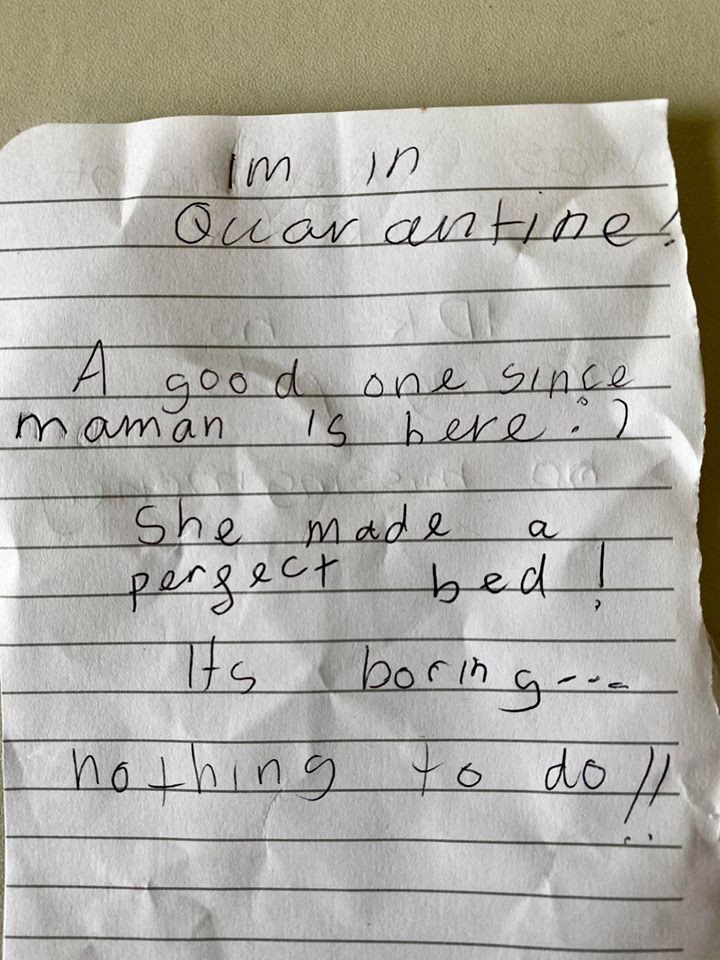 Im in
Quarantine!
A good one since
maman is here :)
She made a
perfect bed!
Its boring...
nothing to do!!